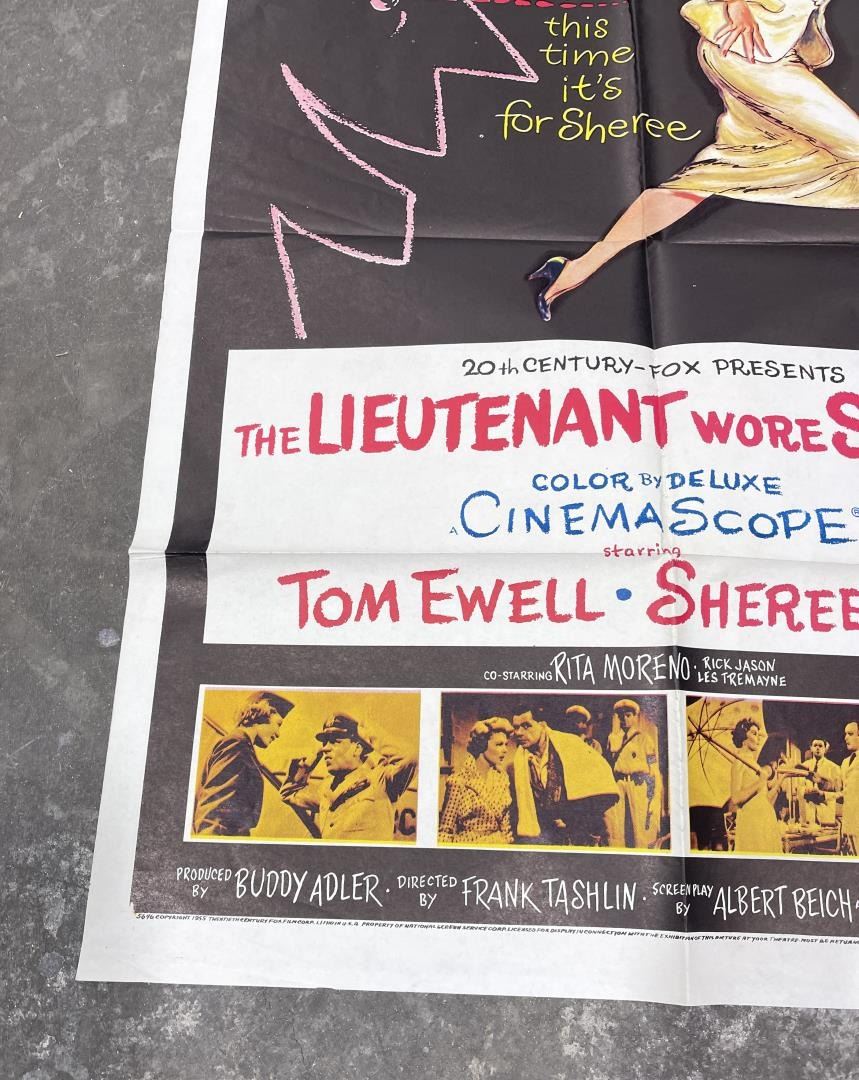 this
time
it's
for Sheree
20th CENTURY-FOX PRESENTS
THE LIEUTENANT WORE S
COLOR BY DELUXE
A CINEMASCOPE®
starring
TOM EWELL • SHEREE
CO-STARRING RITA MORENO • RICK JASON
LES TREMAYNE
PRODUCED BY BUDDY ADLER • DIRECTED BY FRANK TASHLIN • SCREENPLAY BY ALBERT BEICH
5696 COPYRIGHT 1955 TWENTIETH CENTURY FOX FILM CORP. LITHO IN U.S.A. PROPERTY OF NATIONAL SCREEN SERVICE CORP. LICENSED FOR DISPLAY IN CONNECTION WITH THE EXHIBITION OF THIS PICTURE AT YOUR THEATRE. MUST BE RETURN